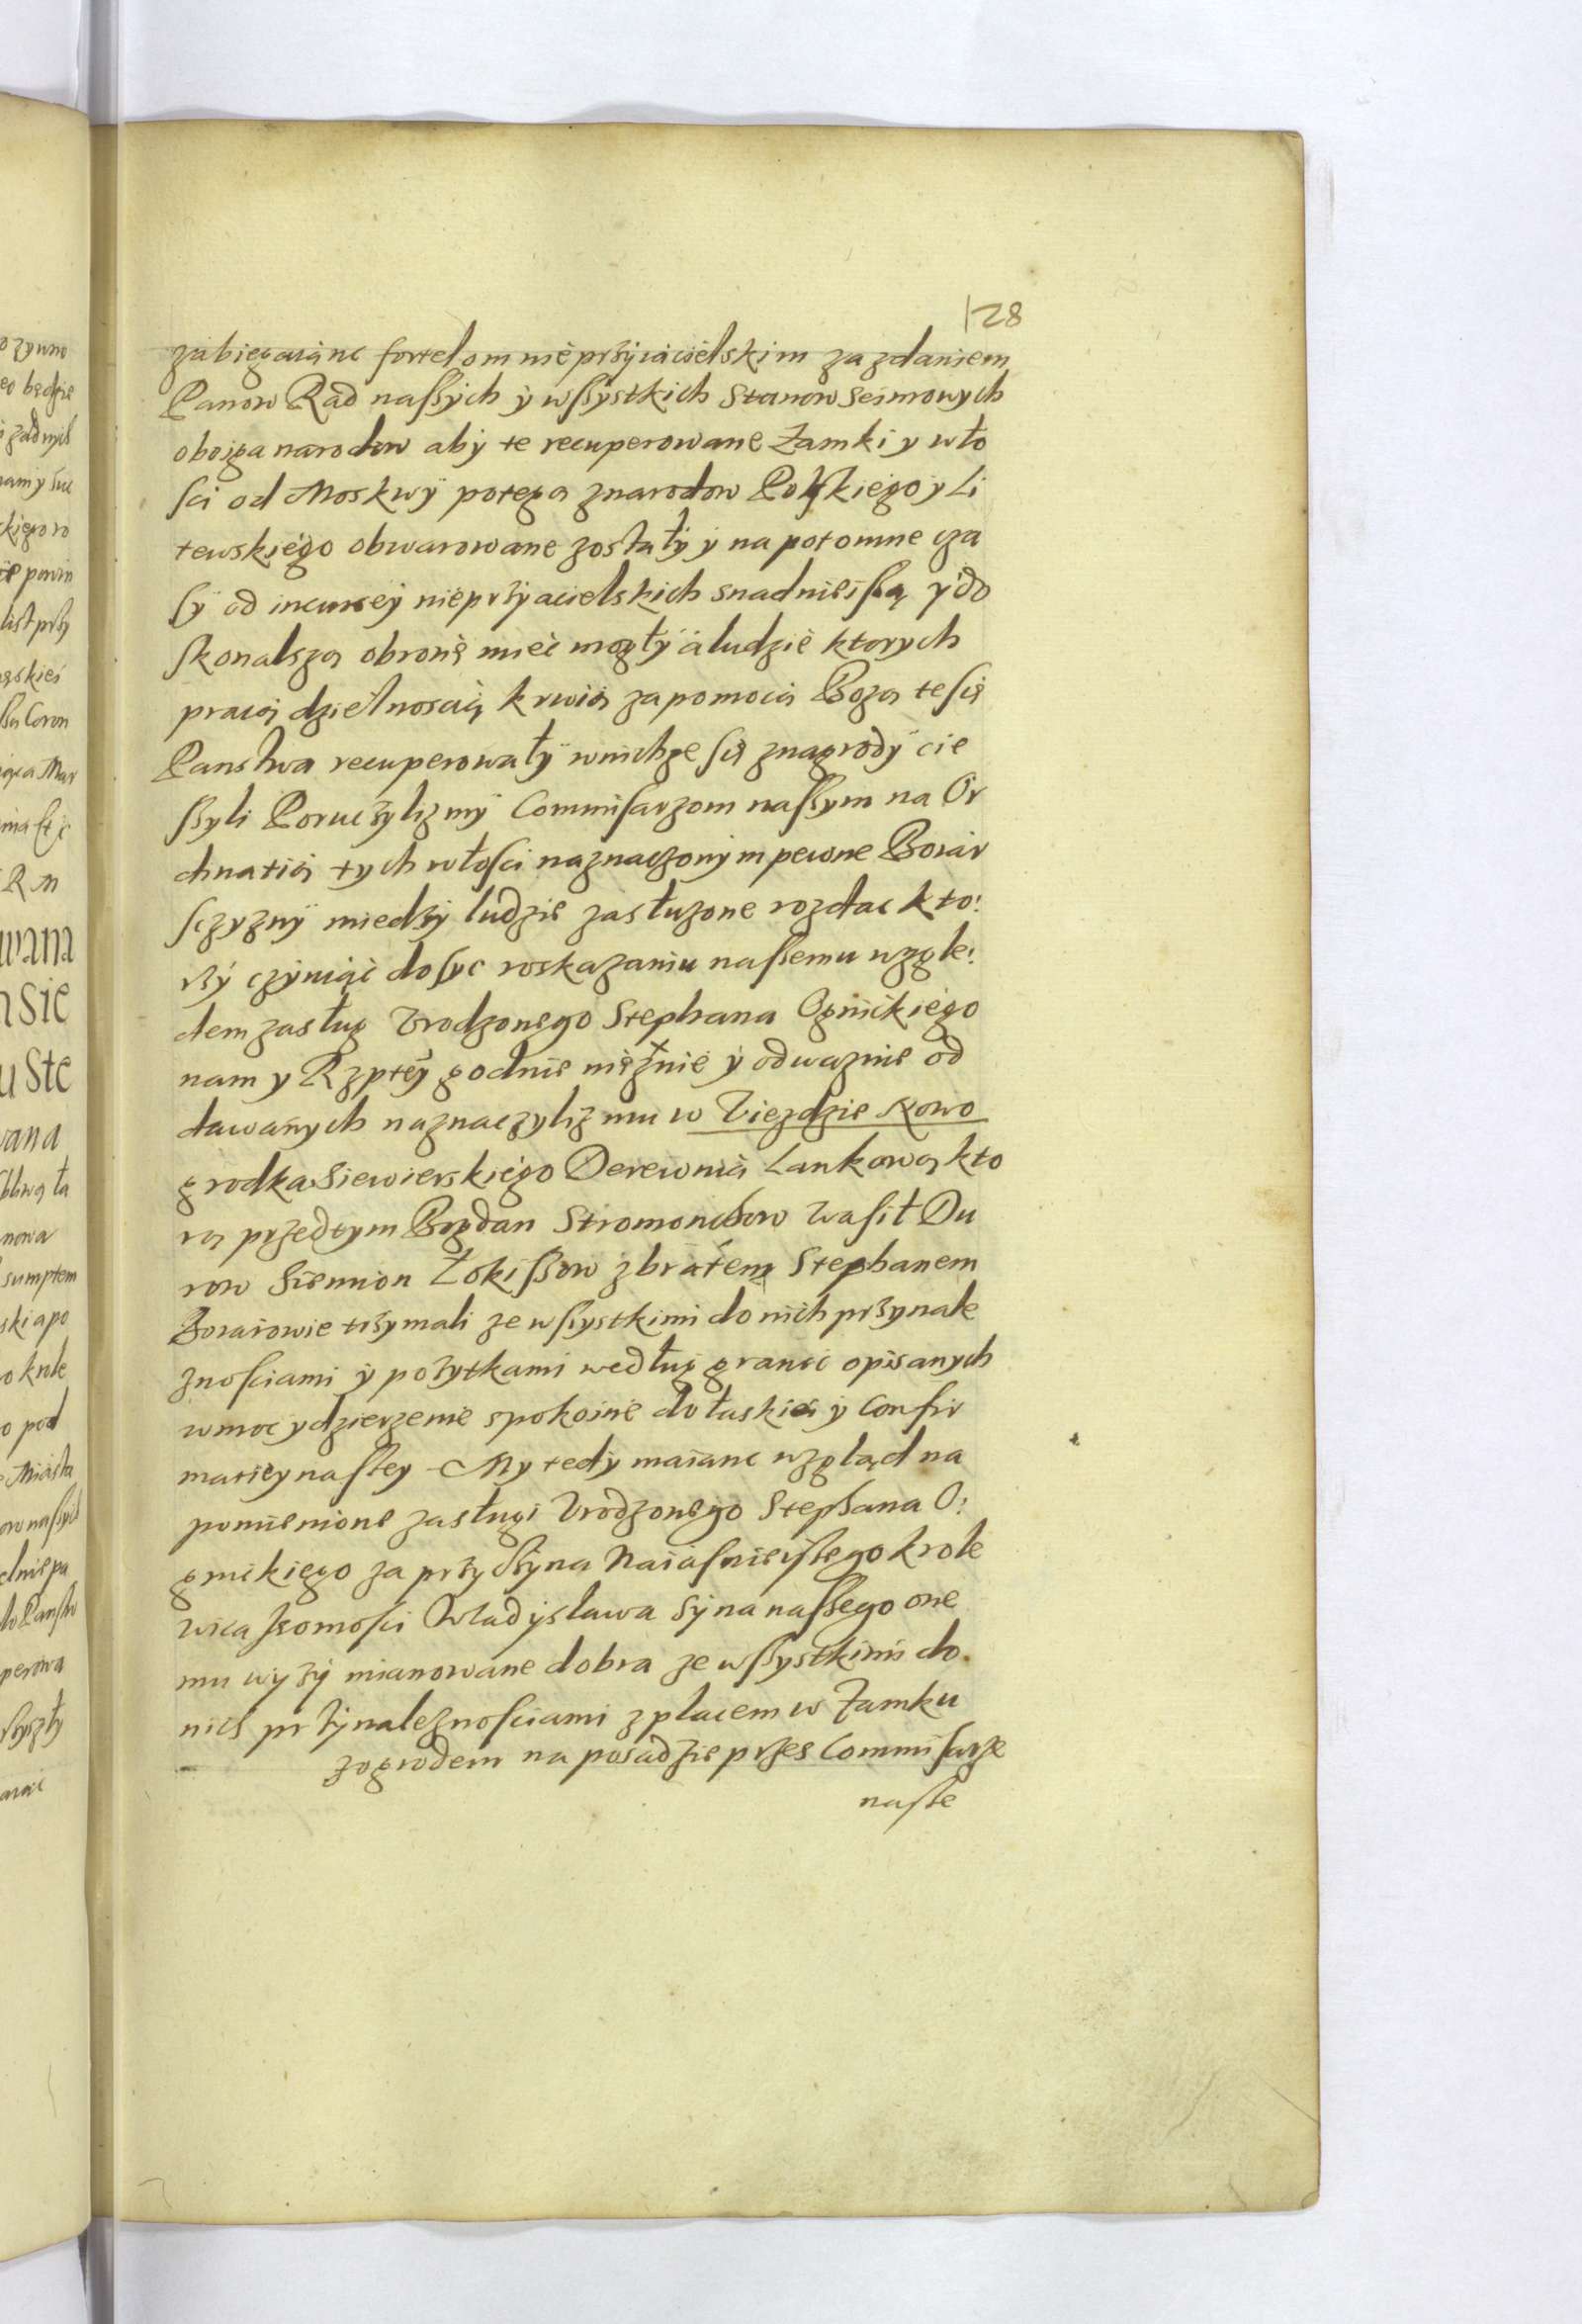 128
zabiegaiąnc fortelom nieprzyiacielskim za zdaniem
Panow Rad naszych y wszystkich Stanow Seimowych
oboiga narodow aby te recuperowane Zamki y wło
sci od Moskwy potega znarodow Polskiego y Li
tewskiego obwarowane zostały y na potomne cza
sy od incursey nieprzyacielskich snadnieiszą y do
skonalszą obronę miec mogły a ludzie ktorych
pracą dzielnoscią krwią za pomocą Bozą te są
Panstwa recuperowały w nichze są znagrody cie
szyli Poruczylizmy Commisarzom naszym na Or
dinatią tych włosci naznaczonym pewne Boiar
sczyzny miedzy ludzie zasłuzone rozdac kto:
rzy czyniąc dosyc roskazaniu naszemu wzgle:
dem zasług Vrodzonego Stephana Oginskiego
nam y Rzptey godnie mężnie y odwaznie od
dawanych naznaczyliz mu w Viezdzie Nowo
grodka Siewierskiego Derewnią Lankową kto
rą przedtym Bogdan Stromouchow Wasil Du
row Siemion Łokissow z bratem Stephanem
Boiarowie trzymali ze wszystkimi do nich przynale
znosciami y pozytkami według granic opisanych
w moc y dzierzenie spokoine do łaski y Confir
matiey naszey My tedy maiąnc wzgląd na
pomienione zasługi Vrodzonego Stephana O:
ginskiego za przyczyną Naiasnieiszego Krole
wica Jeomosci Władysława Syna naszego one
mu wyzy mianowane dobra ze wszystkimi do
nich przynaleznosciami z placem w Zamku
z ogrodem na posadzie przes Commisarze
nasze